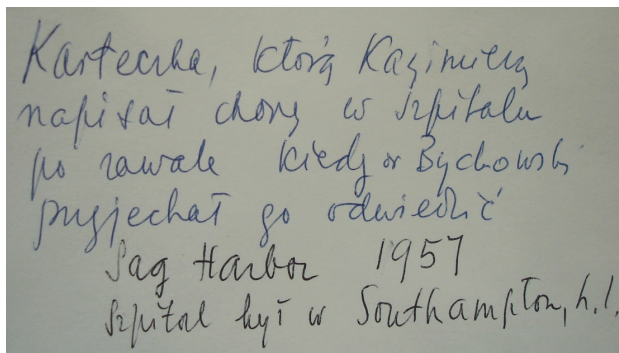 Karteczka, którą Kazimierz
napisał chory w szpitalu
po zawale kiedy dr Bychowski
przyjechał go odwiedzić
Sag Harbor 1957
Szpital był w Southampton, L.I.